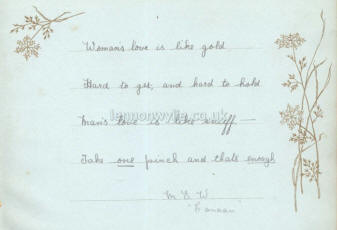 Woman's love is like gold
Hard to get, and hard to hold
Man's love is like snuff —
Take one pinch and thats enough
lennonwylie.co.uk
M S W